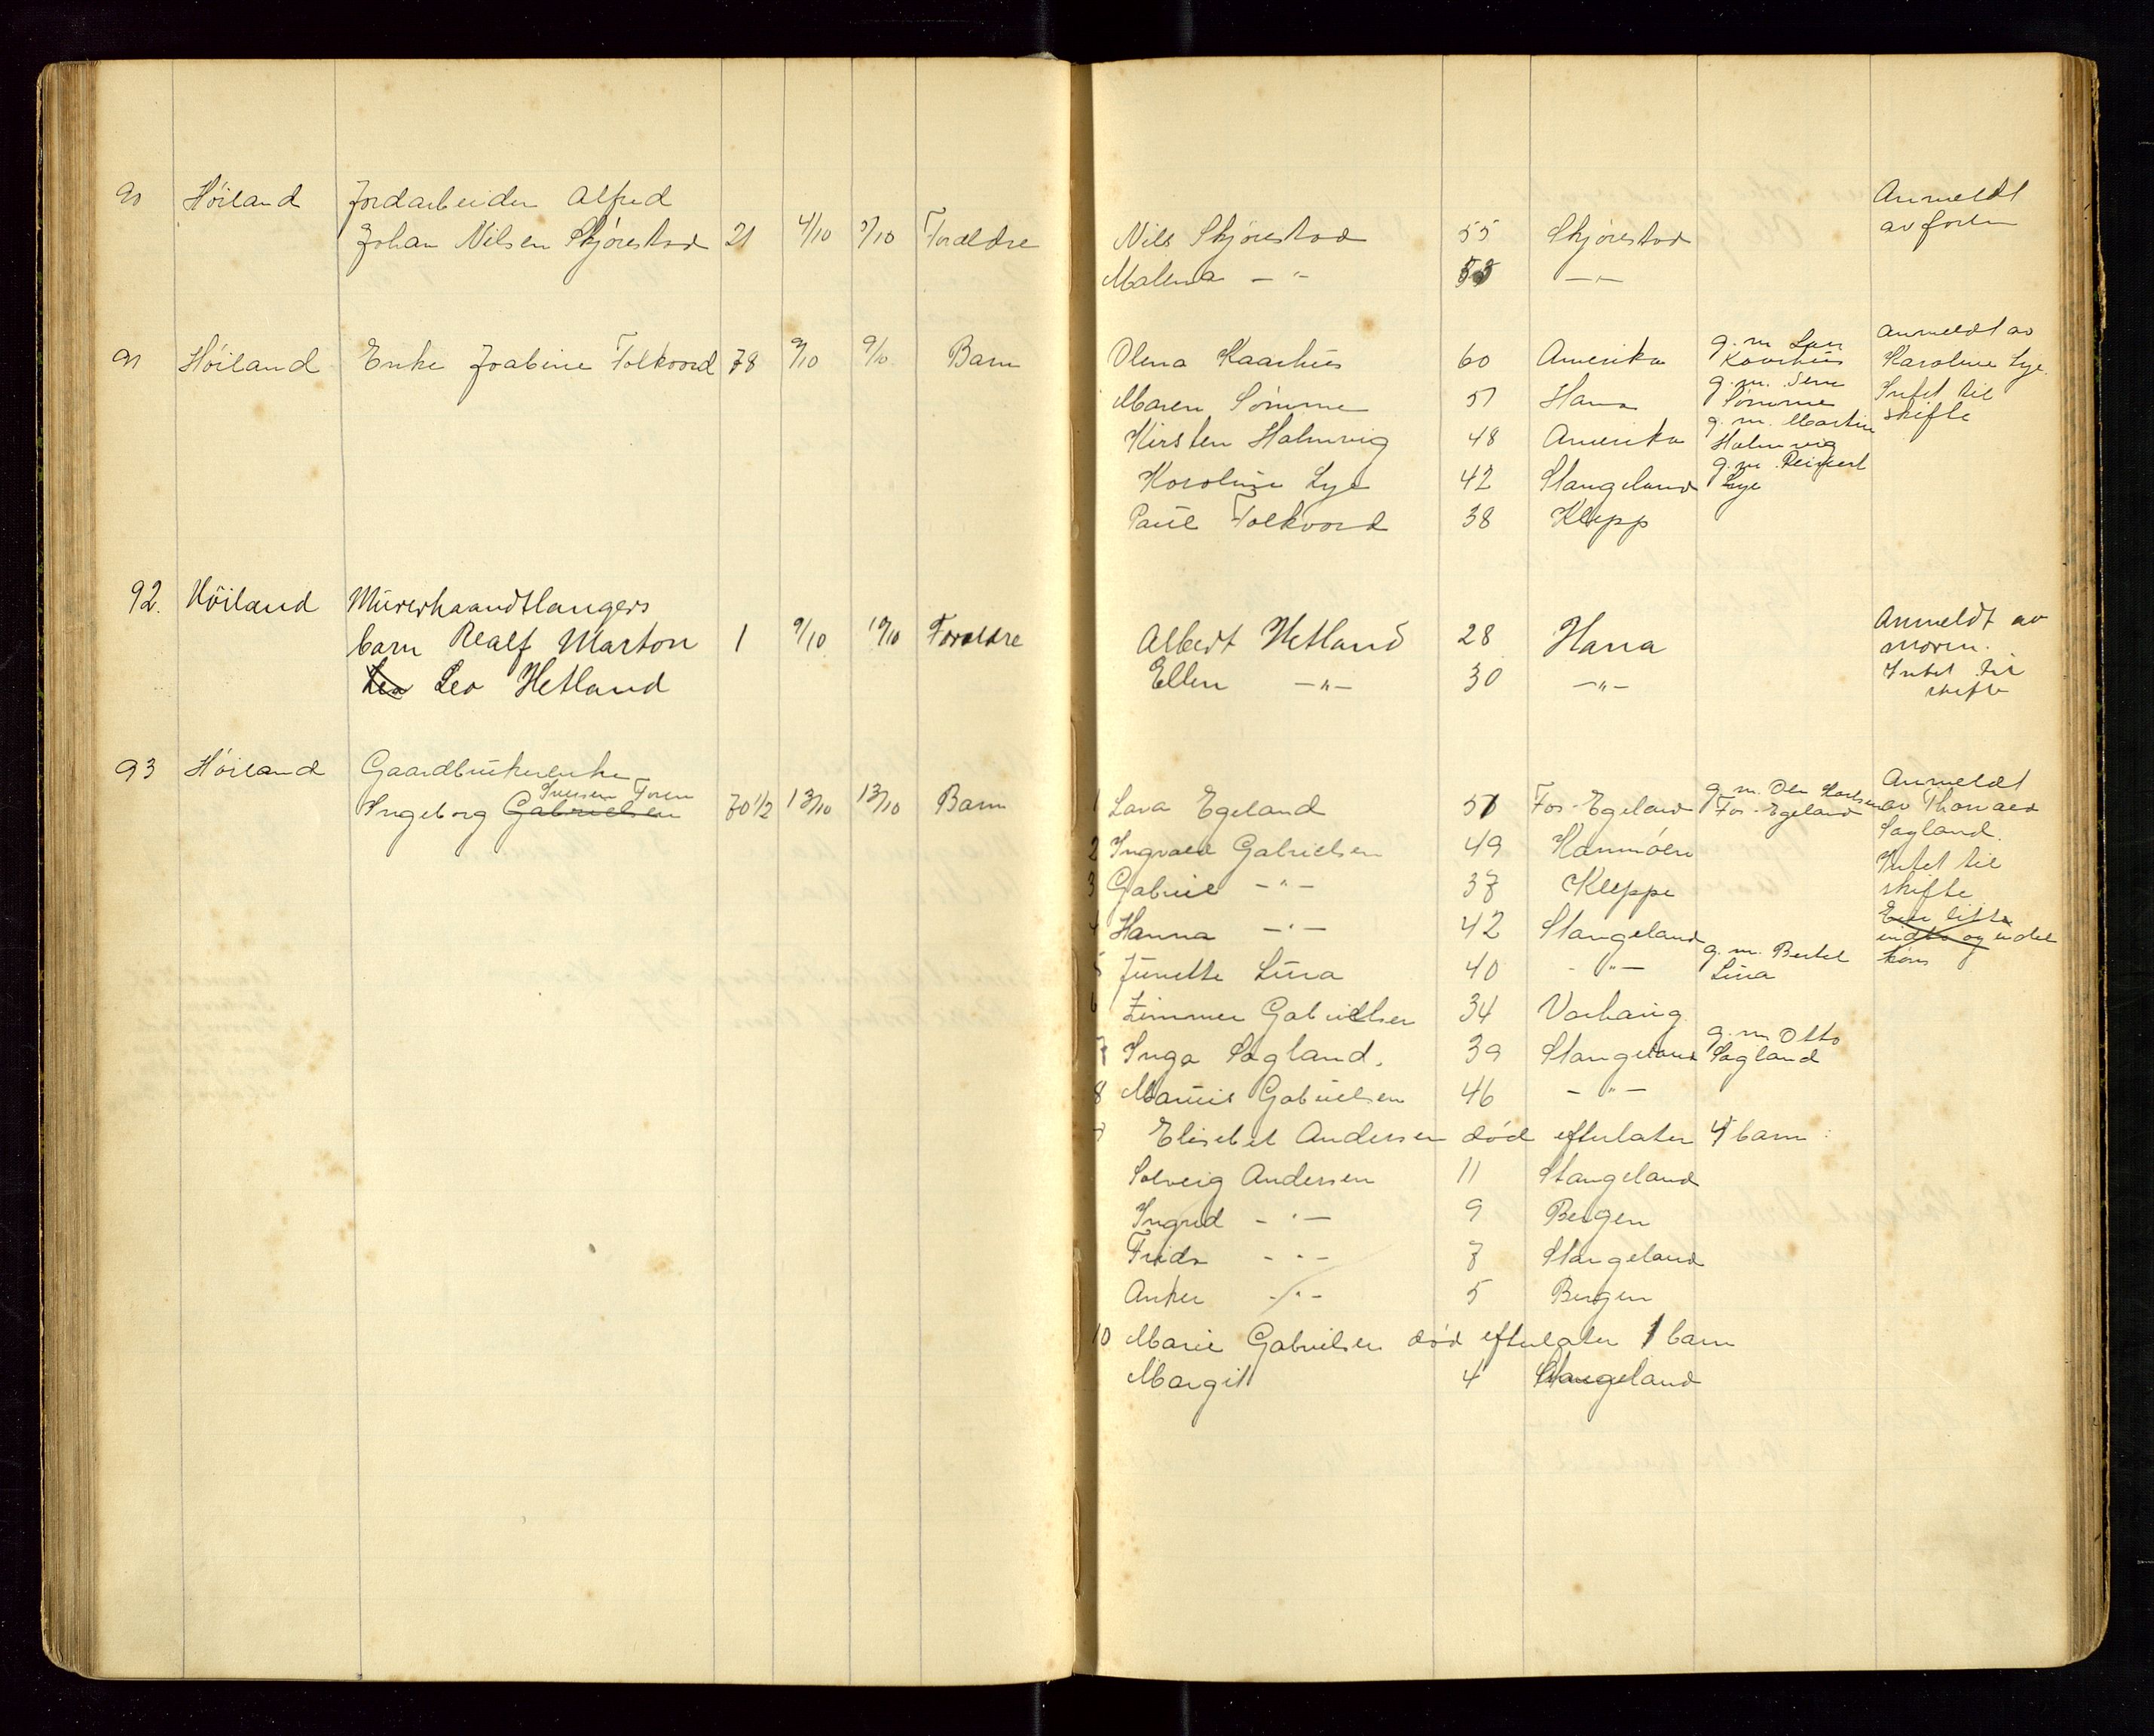 90 Höiland Jordarbeider Alfred
Johan Nilsen Skjörestad 21 4/10 5/10 Forældre
91 Höiland Enke Joabine Folkvord 78 9/10 9/10 Barn
92. Höiland Murerhaandtlangers
barn Realf Marton 1 9/10 10/10 Forældre
Lea Leo Hetland
93 Höiland Gaardbrukerenke
Iversen Foren
Ingeborg Gabrielsen 70 1/2 13/10 13/10 Barn
Anmeldt
av faren
Nils Skjörestad 55 Skjörestad
Malena —"— 55 —"—
Olena Kaarhus 60 Amerika g. m. Lars Kaarhus
Maren Sömme 51 Hana g. m. Sömme
Kirsten Halmvig 48 Amerika g. m. Martin Halmvig
Karoline Lye 42 Stangeland g. m. Reinert Lye
Paul Folkvord 38 Klepp
Anmeldt av
Karoline Lye.
Intet til
skifte
Albert Hetland 28 Hana
Ellen —"— 30 —"—
Anmeldt av
moren.
Intet til
skifte
1 Lava Egeland 51 Fos-Egeland g. m. Ole Fos-Egeland
2 Ingvald Gabrielsen 49
3 Gabriel —"— 37 Kleppe
4 Hanna —"— 42 Stangeland
5 Junette Lura 40 —"— g. m. Bertel Lura
6 Zimmer Gabrielsen 34 Varhaug
7 Inga Sagland. 39 Stangeland g. m. Otto Sagland
8 Gabrielsen 46 —"—
9 Elisebet Andersen död efterlater 4 barn:
Solveig Andersen 11 Stangeland
Ingrid —"— 9 Bergen
Frida —"— 7 Stangeland
Anker —"— 5 Bergen
10 Marie Gabrielsen död efterlater 1 barn
Margit 4 Stangeland
Anmeldt
av Thorvald
Sagland.
Intet til
skifte